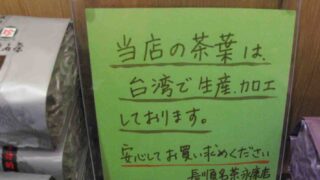 当店の茶葉は、
台湾で生産、加工
しております。
安心してお買い求めください
長順名茶永康店